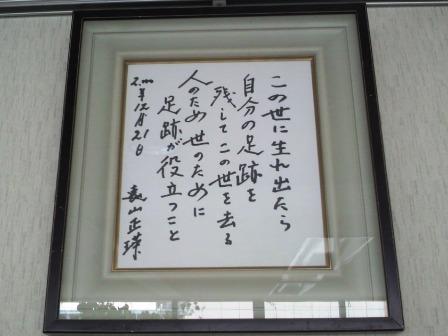 この世に生れ出たら
自分の足跡を
残してこの世を去る
人のため世のために
足跡が役立つこと
年12月21日
山正